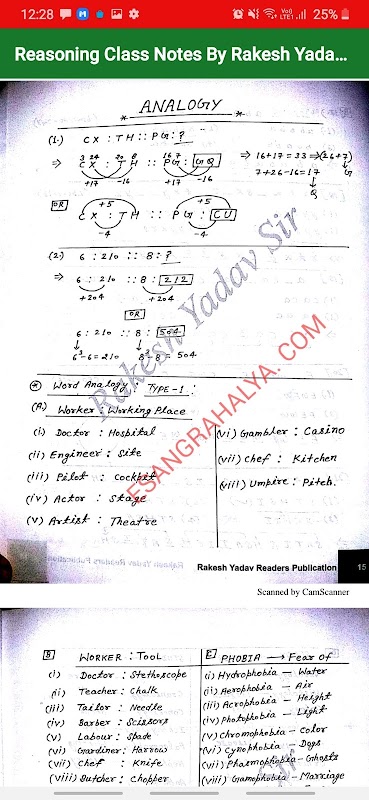 12:28
25%
Reasoning Class Notes By Rakesh Yada...
ANALOGY
(1.) CX : TH :: PG : ?
3 24 20 8 16 7
⇒ CX : TH :: PG : GQ ⇒ 16+17=33 ⇒ (26+7)
+17 -16 +17 -16 7+26-16=17 G
Q
OR +5 +5
CX : TH :: PG : CU
-4 -4
(2.) 6 : 210 :: 8 : ?
⇒ 6 : 210 :: 8 : 212
+204 +204
OR
6 : 210 :: 8 : 504
6³-6=210 8³-8=504
Rakesh Yadav Sir
ESANGRAHALYA.COM
Word Analogy TYPE-1:
(A) Worker : Working Place
(i) Doctor : Hospital
(ii) Engineer : Site
(iii) Pilot : Cockpit
(iv) Actor : Stage
(v) Artist : Theatre
(vi) Gambler : Casino
(vii) Chef : Kitchen
(viii) Umpire : Pitch.
Rakesh Yadav Readers Publication 15
Scanned by CamScanner
B WORKER : TOOL
(i) Doctor : Stethoscope
(ii) Teacher : Chalk
(iii) Tailor : Needle
(iv) Barber : Scissors
(v) Labour : Spade
(vi) Gardiner : Harrow
(vii) Chef : Knife
(viii) Butcher : Chopper
C PHOBIA → Fear of
(i) Hydrophobia — Water
(ii) Aerophobia — Air
(iii) Acrophobia — Height
(iv) Photophobia — Light
(v) Chromophobia — Color
(vi) Cynophobia — Dogs
(vii) Phasmophobia — Ghosts
(viii) Gamophobia — Marriage